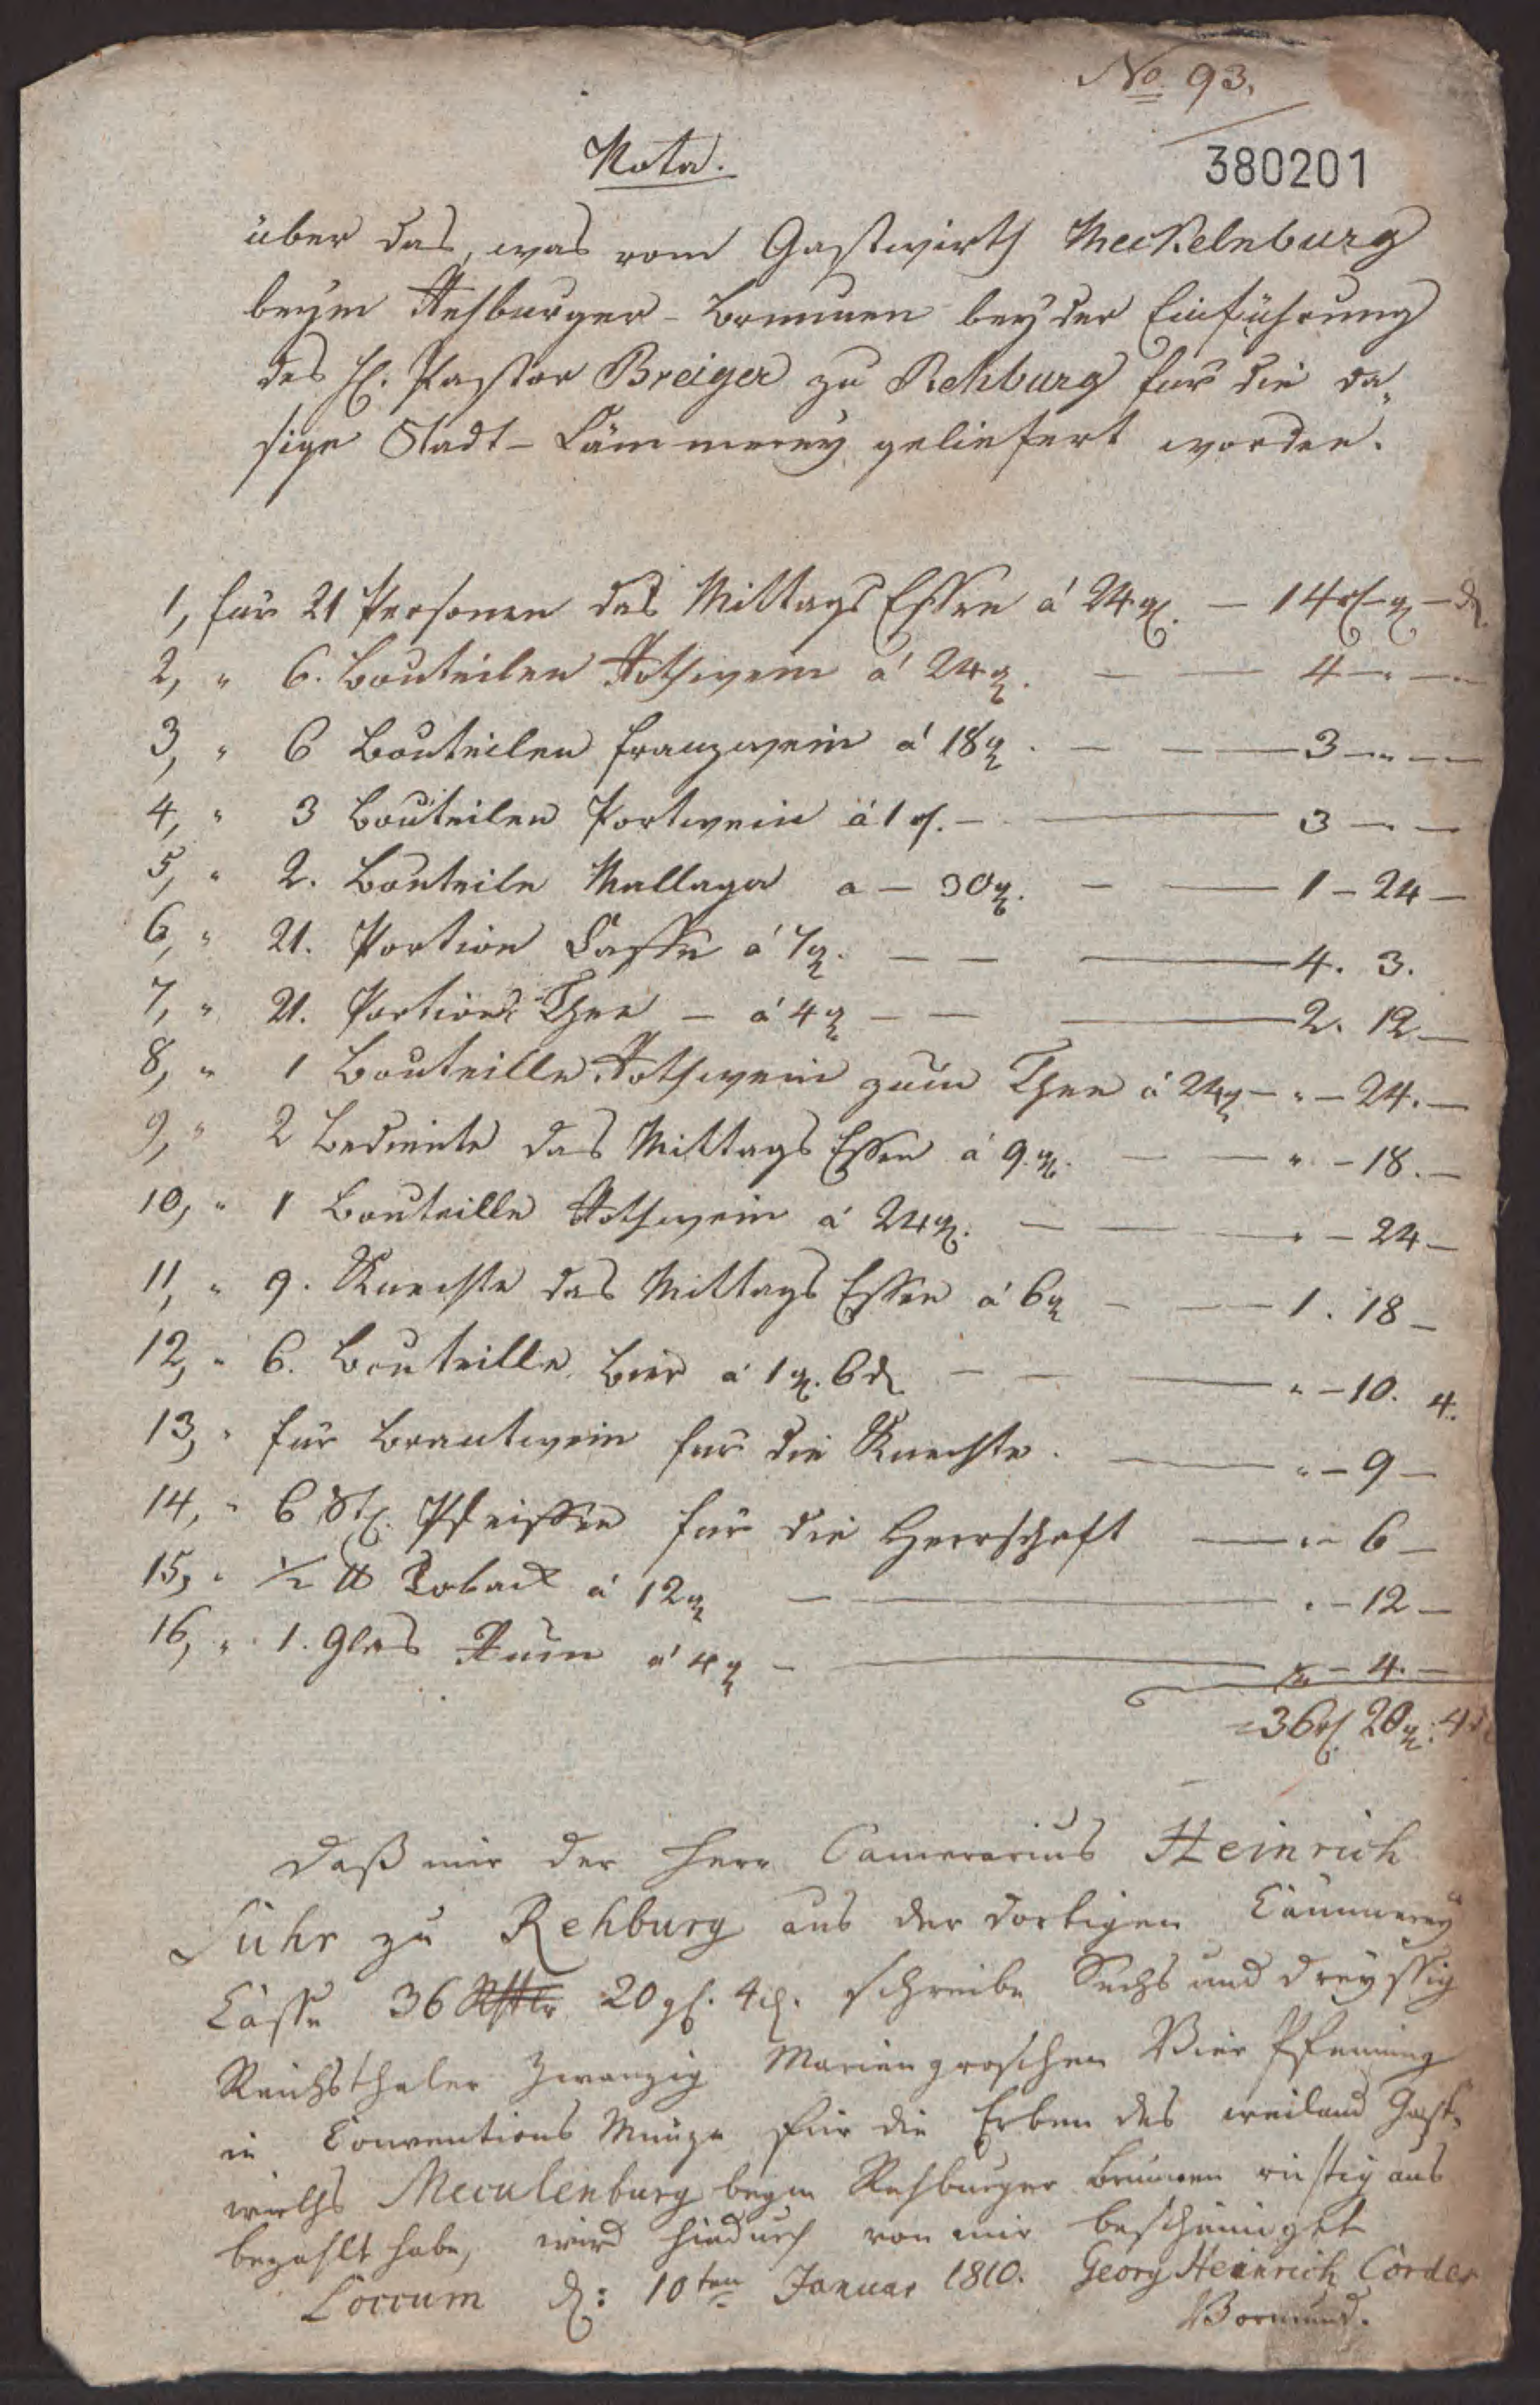 No. 93.
380201
Nota.
über das, was vom Gastwirth Meckelnburg
beym Rehburger-Brunnen bey der Einführung
des H. Pastor Breiger zu Rehburg für die da,
sige Stadt-Cämmerey geliefert worden.
1, für 21 Personen das Mittags Essen á 24 gl. — 14 rl — gl — d.
2, " 6. Bouteilen Rothwein á 24 gl. — — 4 — " —
3, " 6 Bouteilen Franzwein á 18 gl. — — 3 — " —
4, " 3 Bouteilen Portwein á 1 rl. — — 3 — " —
5, " 2. Bouteile Mallaga a — 30 gl. — — 1 — 24 —
6, " 21. Portion Caffe á 7 gl. — — — 4. 3.
7, " 21. Portion Thee — á 4 gl — — — 2. 12 —
8, " 1 Bouteille Rothwein zum Thee á 24 gl — " — 24. —
9, " 2 Bediente das Mittags Essen á 9 gl. — — " — 18. —
10, " 1 Bouteille Rothwein á 24 gl. — — " — 24 —
11, " 9. Knechte das Mittags Essen á 6 gl — — 1. 18 —
12, " 6. Bouteille Bier á 1 gl. 6 d — — — " — 10. 4.
13, " für Brantwein für die Knechte. — — " — 9 —
14, " 6 St. Pfeiffen für die Herrschaft — " — 6 —
15, " 1/2 ℔ Toback á 12 gl — — " — 12 —
16, " 1. Glas Rum á 4 gl — — " — 4. —
= 36 rl. 20 gl. 4 d
Daß mir der Herr Camerarius Heinrich
Suhr zu Rehburg aus der dortigen Cämmerey
Casse 36 Rthlr 20 gl. 4 d. schreibe Sechs und dreyssig
Reichsthaler Zwanzig Mariengroschen Vier Pfenning
in Conventions Münze für die Erben des weiland Gast-
wirths Meculenburg beym Rehburger Brunnen richtig aus
bezahlt habe, wird hiedurch von mir bescheiniget
Loccum d: 10ten Januar 1810. Georg Heinrich Cordes
Vormund.